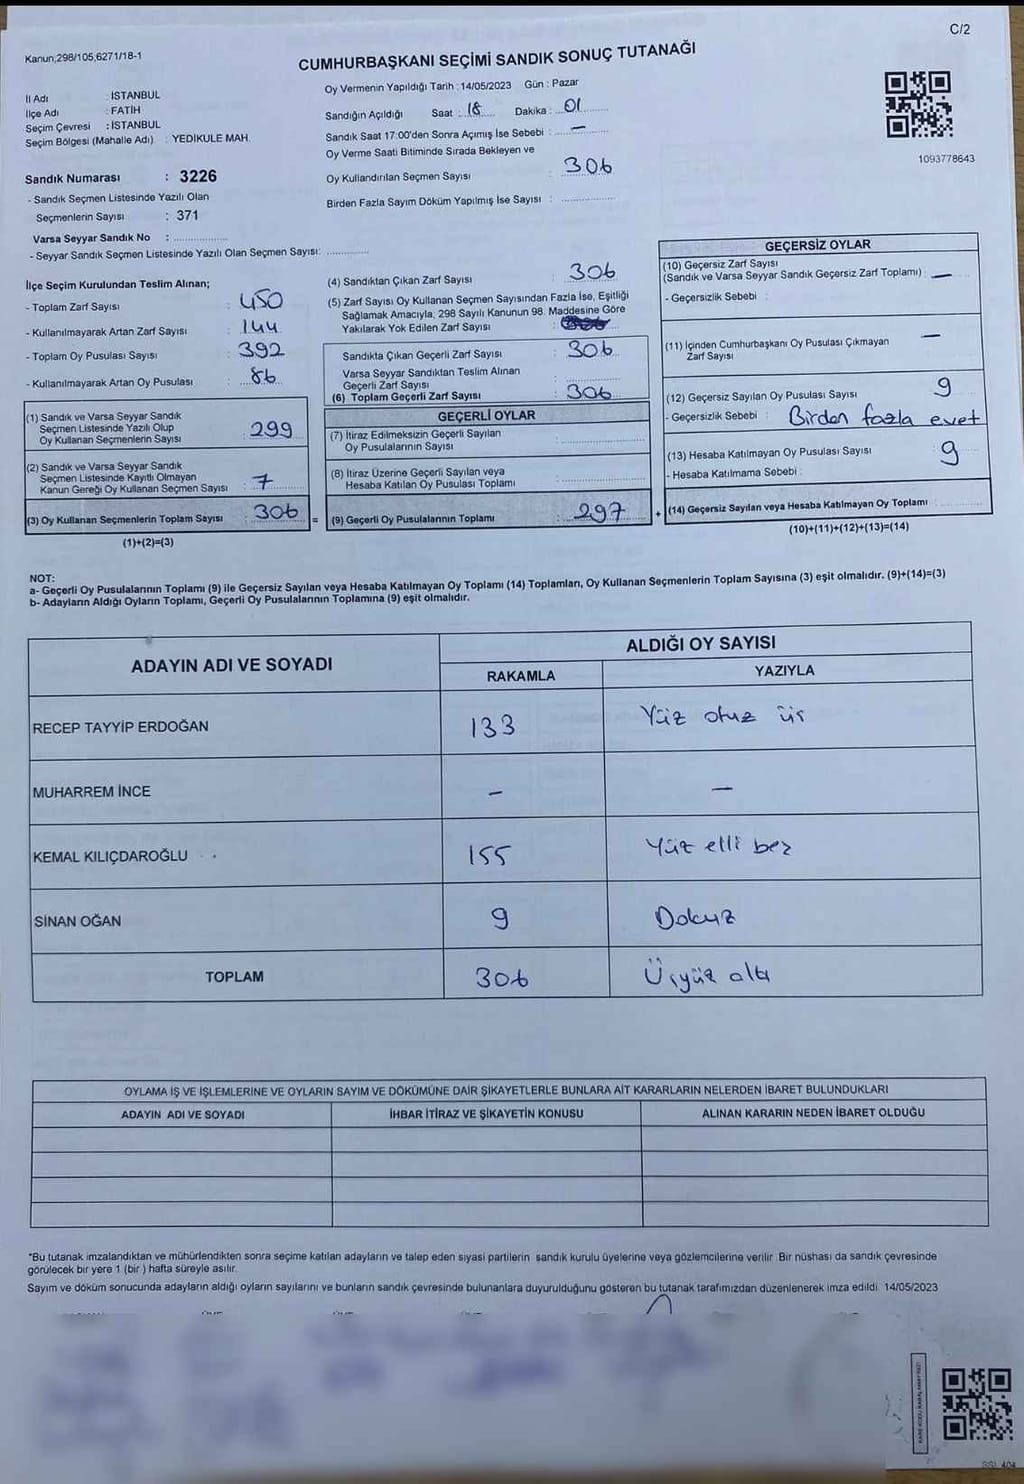 C/2
Kanun;298/105;6271/18-1
CUMHURBAŞKANI SEÇİMİ SANDIK SONUÇ TUTANAĞI
İl Adı : İSTANBUL
İlçe Adı : FATİH
Seçim Çevresi : İSTANBUL
Seçim Bölgesi (Mahalle Adı) : YEDİKULE MAH.
Sandık Numarası : 3226
- Sandık Seçmen Listesinde Yazılı Olan
Seçmenlerin Sayısı : 371
Varsa Seyyar Sandık No :
- Seyyar Sandık Seçmen Listesinde Yazılı Olan Seçmen Sayısı:
Oy Vermenin Yapıldığı Tarih : 14/05/2023 Gün : Pazar
Sandığın Açıldığı Saat : 18 Dakika : 01
Sandık Saat 17:00'den Sonra Açımış İse Sebebi : —
Oy Verme Saati Bitiminde Sırada Bekleyen ve
Oy Kullandırılan Seçmen Sayısı : 306
Birden Fazla Sayım Döküm Yapılmış İse Sayısı :
1093778643
İlçe Seçim Kurulundan Teslim Alınan;
- Toplam Zarf Sayısı : 450
- Kullanılmayarak Artan Zarf Sayısı : 144
- Toplam Oy Pusulası Sayısı : 392
- Kullanılmayarak Artan Oy Pusulası : 86
(1) Sandık ve Varsa Seyyar Sandık
Seçmen Listesinde Yazılı Olup
Oy Kullanan Seçmenlerin Sayısı : 299
(2) Sandık ve Varsa Seyyar Sandık
Seçmen Listesinde Kayıtlı Olmayan
Kanun Gereği Oy Kullanan Seçmen Sayısı : 7
(3) Oy Kullanan Seçmenlerin Toplam Sayısı : 306
(1)+(2)=(3)
(4) Sandıktan Çıkan Zarf Sayısı : 306
(5) Zarf Sayısı Oy Kullanan Seçmen Sayısından Fazla İse, Eşitliği
Sağlamak Amacıyla, 298 Sayılı Kanunun 98. Maddesine Göre
Yakılarak Yok Edilen Zarf Sayısı :
Sandıkta Çıkan Geçerli Zarf Sayısı : 306
Varsa Seyyar Sandıktan Teslim Alınan
Geçerli Zarf Sayısı :
(6) Toplam Geçerli Zarf Sayısı : 306
GEÇERLİ OYLAR
(7) İtiraz Edilmeksizin Geçerli Sayılan
Oy Pusulasının Sayısı :
(8) İtiraz Üzerine Geçerli Sayılan veya
Hesaba Katılan Oy Pusulası Toplamı :
= (9) Geçerli Oy Pusulalarının Toplamı : 297
GEÇERSİZ OYLAR
(10) Geçersiz Zarf Sayısı
(Sandık ve Varsa Seyyar Sandık Geçersiz Zarf Toplamı) : —
- Geçersizlik Sebebi :
(11) İçinden Cumhurbaşkanı Oy Pusulası Çıkmayan
Zarf Sayısı —
(12) Geçersiz Sayılan Oy Pusulası Sayısı 9
- Geçersizlik Sebebi : Birden fazla evet
(13) Hesaba Katılmayan Oy Pusulası Sayısı 9
- Hesaba Katılmama Sebebi :
+ (14) Geçersiz Sayılan veya Hesaba Katılmayan Oy Toplamı
(10)+(11)+(12)+(13)=(14)
NOT:
a- Geçerli Oy Pusulalarının Toplamı (9) ile Geçersiz Sayılan veya Hesaba Katılmayan Oy Toplamı (14) Toplamları, Oy Kullanan Seçmenlerin Toplam Sayısına (3) eşit olmalıdır. (9)+(14)=(3)
b- Adayların Aldığı Oyların Toplamı, Geçerli Oy Pusulalarının Toplamına (9) eşit olmalıdır.
ADAYIN ADI VE SOYADI
ALDIĞI OY SAYISI
RAKAMLA YAZIYLA
RECEP TAYYİP ERDOĞAN 133 Yüz otuz üç
MUHARREM İNCE — —
KEMAL KILIÇDAROĞLU 155 Yüz elli beş
SİNAN OĞAN 9 Dokuz
TOPLAM 306 Üçyüz altı
OYLAMA İŞ VE İŞLEMLERİNE VE OYLARIN SAYIM VE DÖKÜMÜNE DAİR ŞİKAYETLERLE BUNLARA AİT KARARLARIN NELERDEN İBARET BULUNDUKLARI
ADAYIN ADI VE SOYADI İHBAR İTİRAZ VE ŞİKAYETİN KONUSU ALINAN KARARIN NEDEN İBARET OLDUĞU
*Bu tutanak imzalandıktan ve mühürlendikten sonra seçime katılan adayların ve talep eden siyasi partilerin sandık kurulu üyelerine veya gözlemcilerine verilir. Bir nüshası da sandık çevresinde
görülecek bir yere 1 (bir ) hafta süreyle asılır.
Sayım ve döküm sonucunda adayların aldığı oyların sayılarını ve bunların sandık çevresinde bulunanlara duyurulduğunu gösteren bu tutanak tarafımızdan düzenlenerek imza edildi. 14/05/2023